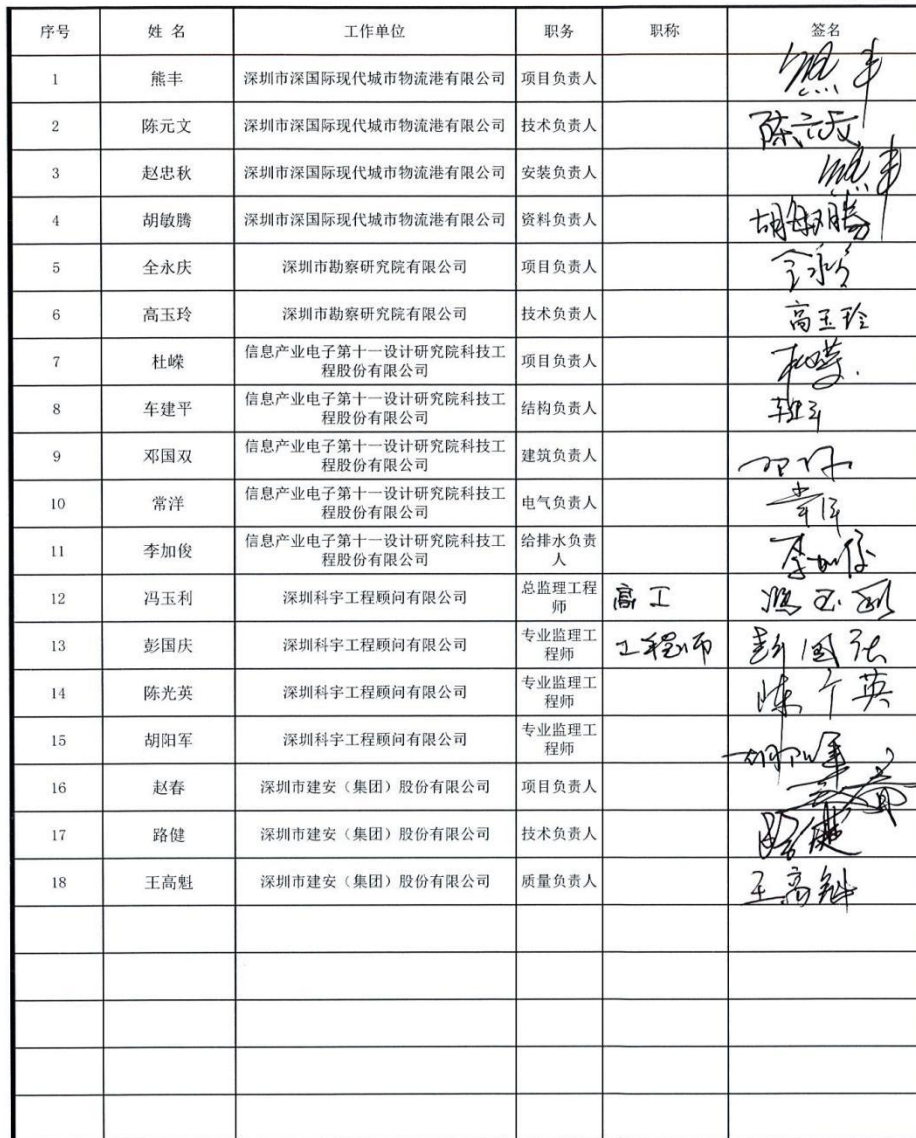 序号 姓 名 工作单位 职务 职称 签名
1 熊丰 深圳市深国际现代城市物流港有限公司 项目负责人 熊丰
2 陈元文 深圳市深国际现代城市物流港有限公司 技术负责人 陈元文
3 赵忠秋 深圳市深国际现代城市物流港有限公司 安装负责人 熊丰
4 胡敏腾 深圳市深国际现代城市物流港有限公司 资料负责人 胡敏腾
5 全永庆 深圳市勘察研究院有限公司 项目负责人 全永庆
6 高玉玲 深圳市勘察研究院有限公司 技术负责人 高玉玲
7 杜嵘 信息产业电子第十一设计研究院科技工
程股份有限公司 项目负责人
8 车建平 信息产业电子第十一设计研究院科技工
程股份有限公司 结构负责人
9 邓国双 信息产业电子第十一设计研究院科技工
程股份有限公司 建筑负责人
10 常洋 信息产业电子第十一设计研究院科技工
程股份有限公司 电气负责人 常洋
11 李加俊 信息产业电子第十一设计研究院科技工
程股份有限公司 给排水负责
人 李加俊
12 冯玉利 深圳科宇工程顾问有限公司 总监理工程
师 高工 冯玉利
13 彭国庆 深圳科宇工程顾问有限公司 专业监理工
程师 工程师 彭国庆
14 陈光英 深圳科宇工程顾问有限公司 专业监理工
程师 陈广英
15 胡阳军 深圳科宇工程顾问有限公司 专业监理工
程师 胡阳军
16 赵春 深圳市建安（集团）股份有限公司 项目负责人
17 路健 深圳市建安（集团）股份有限公司 技术负责人 路健
18 王高魁 深圳市建安（集团）股份有限公司 质量负责人 王高魁